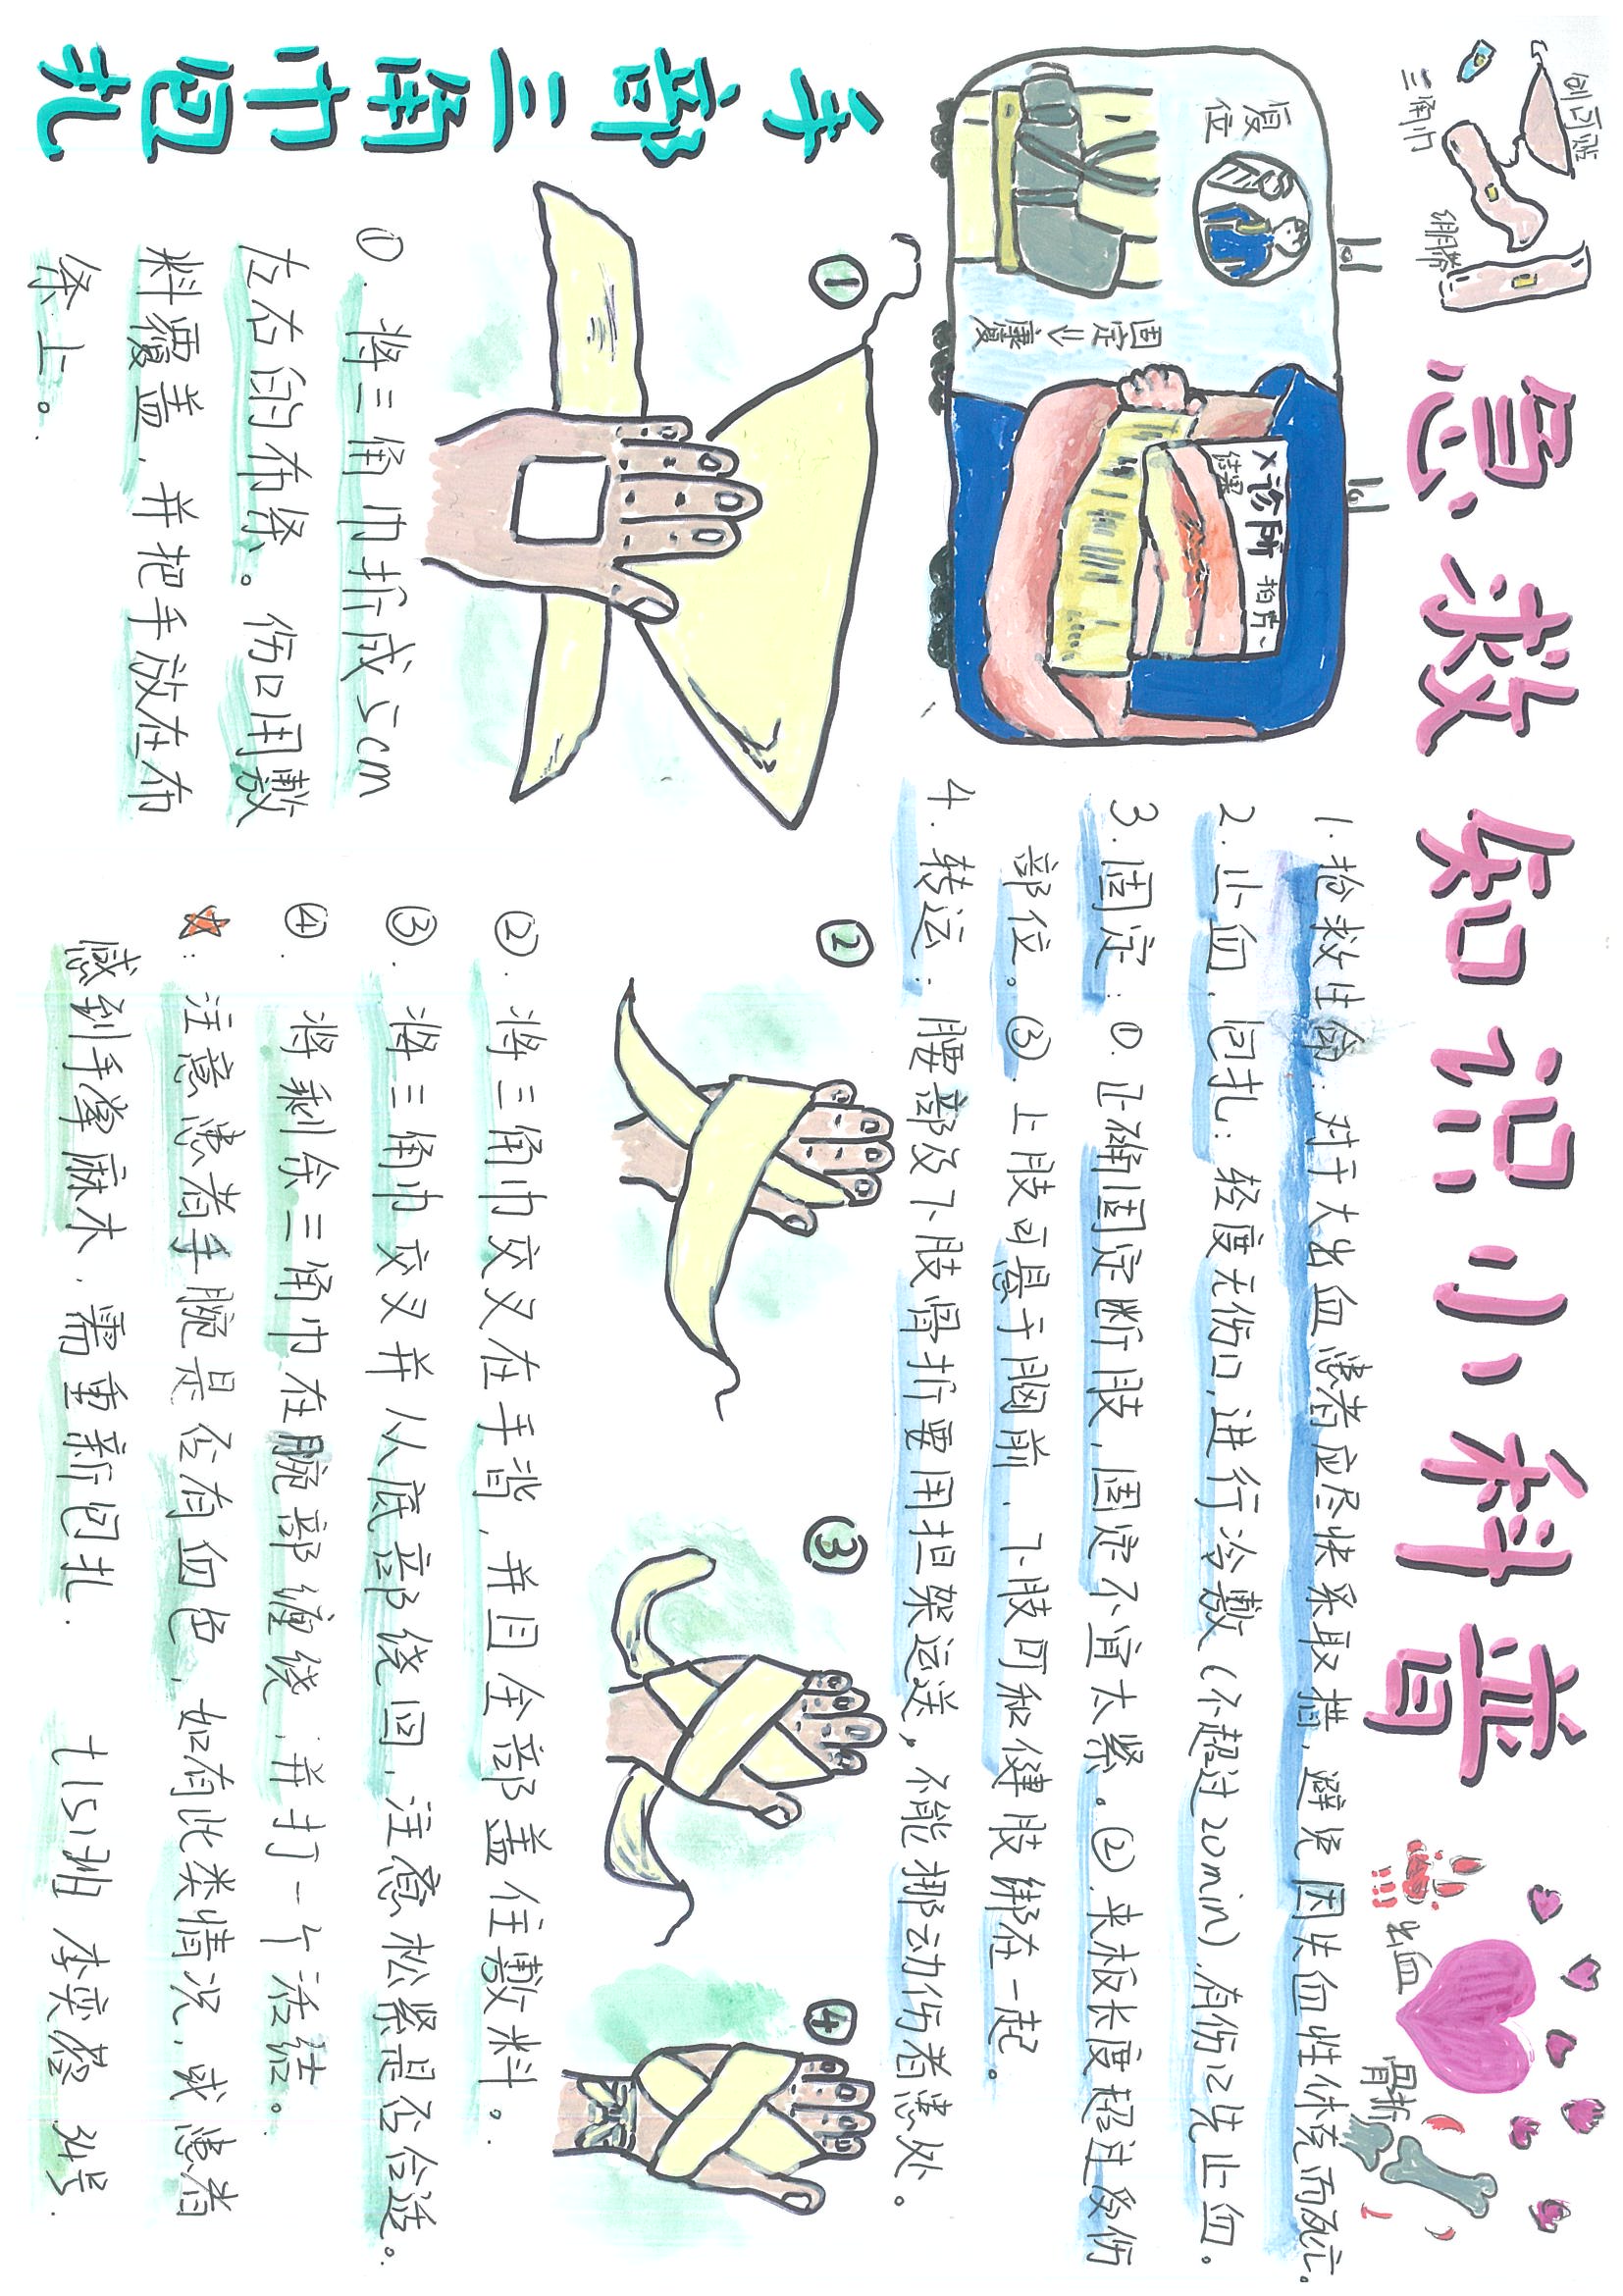 创可贴
三角巾
绷带
急救知识小科普
出血
骨折
复位
固定⇓康复
X诊所 拍片~
结果
1. 抢救生命：对于大出血患者应尽快采取措，避免因失血性休克而死亡。
2. 止血、包扎：轻度无伤口，进行冷敷（不超过20min），有伤口先止血。
3. 固定：①. 正确固定断肢，固定不宜太紧。②. 夹板长度超过受伤
部位。③. 上肢可悬于胸前，下肢可和健肢绑在一起。
4. 转运：腰部及下肢骨折要用担架运送，不能挪动伤者患处。
手部三角巾包扎
①
②
③
④
①. 将三角巾折成5cm
左右的布条。伤口用敷
料覆盖，并把手放在布
条上。
②. 将三角巾交叉在手背，并且全部盖住敷料。
③. 将三角巾交叉并从底部绕回，注意松紧是否合适。
④. 将剩余三角巾在腕部缠绕，并打一个活结。
☆：注意患者手腕是否有血色，如有此类情况，或患者
感到手掌麻木，需重新包扎.
七(5)班 李奕蓉 34号.